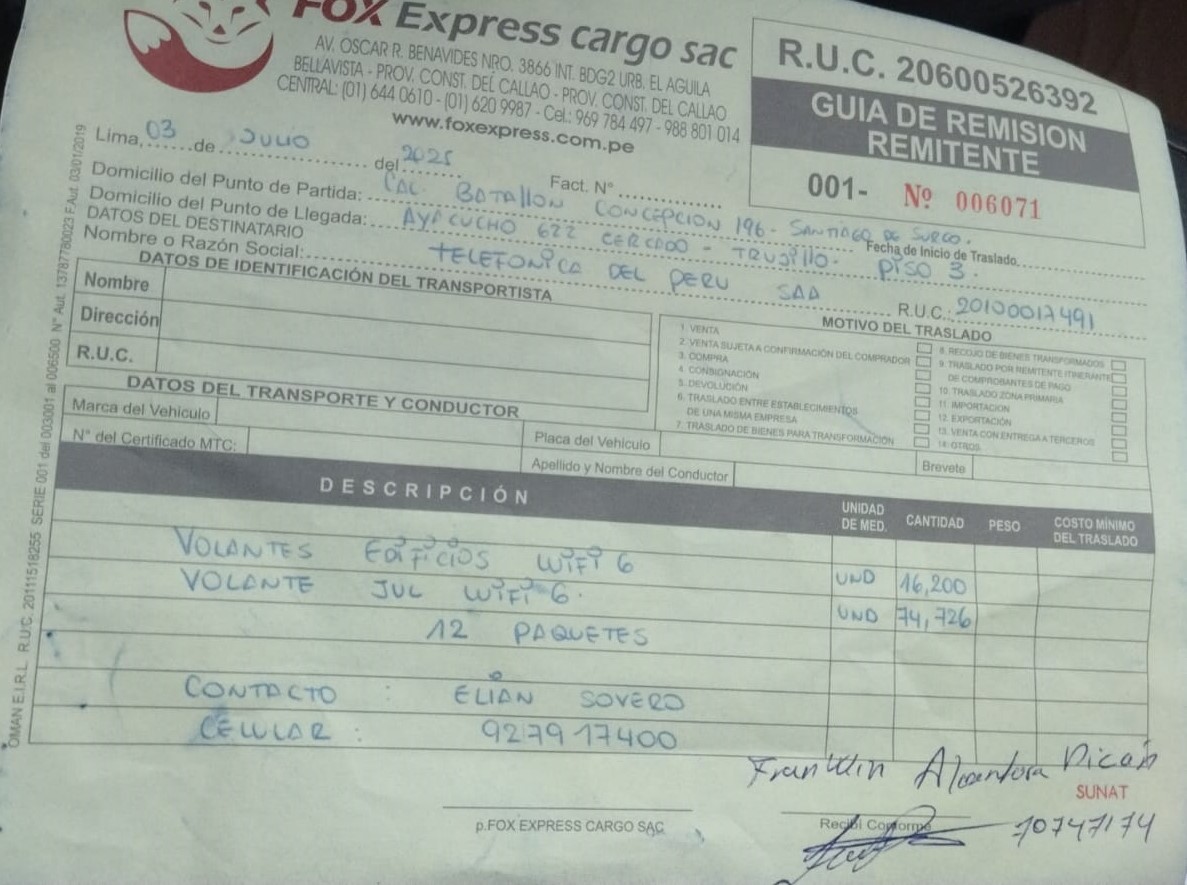 FOX Express cargo sac
AV. OSCAR R. BENAVIDES NRO. 3866 INT. BDG2 URB. EL AGUILA
BELLAVISTA - PROV. CONST. DEL CALLAO - PROV. CONST. DEL CALLAO
CENTRAL: (01) 644 0610 - (01) 620 9987 - Cel.: 969 784 497 - 988 801 014
www.foxexpress.com.pe
R.U.C. 20600526392
GUIA DE REMISION
REMITENTE
001- Nº 006071
Lima, 03 de JULIO del 2025 Fact. N°
Domicilio del Punto de Partida: CAL. BATALLON CONCEPCION 196 - SANTIAGO DE SURCO.
Domicilio del Punto de Llegada: AYACUCHO 622 CERCADO - TRUJILLO. PISO 3.
Fecha de Inicio de Traslado
DATOS DEL DESTINATARIO
Nombre o Razón Social: TELEFONICA DEL PERU SAA R.U.C.: 20100017491
DATOS DE IDENTIFICACIÓN DEL TRANSPORTISTA
Nombre
Dirección
R.U.C.
MOTIVO DEL TRASLADO
1. VENTA
2. VENTA SUJETA A CONFIRMACIÓN DEL COMPRADOR
3. COMPRA
4. CONSIGNACIÓN
5. DEVOLUCIÓN
6. TRASLADO ENTRE ESTABLECIMIENTOS
DE UNA MISMA EMPRESA
7. TRASLADO DE BIENES PARA TRANSFORMACIÓN
8. RECOJO DE BIENES TRANSFORMADOS
9. TRASLADO POR REMITENTE ITINERANTE
DE COMPROBANTES DE PAGO
10. TRASLADO ZONA PRIMARIA
11. IMPORTACION
12. EXPORTACIÓN
13. VENTA CON ENTREGA A TERCEROS
14. OTROS
DATOS DEL TRANSPORTE Y CONDUCTOR
Marca del Vehículo
N° del Certificado MTC:
Placa del Vehículo
Apellido y Nombre del Conductor
Brevete
DESCRIPCIÓN UNIDAD DE MED. CANTIDAD PESO COSTO MÍNIMO DEL TRASLADO
VOLANTES EDIFICIOS WIFI 6 UND 16,200
VOLANTE JUL WIFI 6. UND 74,726
12 PAQUETES
CONTACTO : ELIAN SOVERO
CELULAR : 927917400
Franklin Alcantara
SUNAT
p.FOX EXPRESS CARGO SAC
Recibí Conforme
70747174
R.U.C. 20111518255 SERIE 001 del 003001 al 006500 N° Aut. 13787780023 F.Aut. 03/01/2019